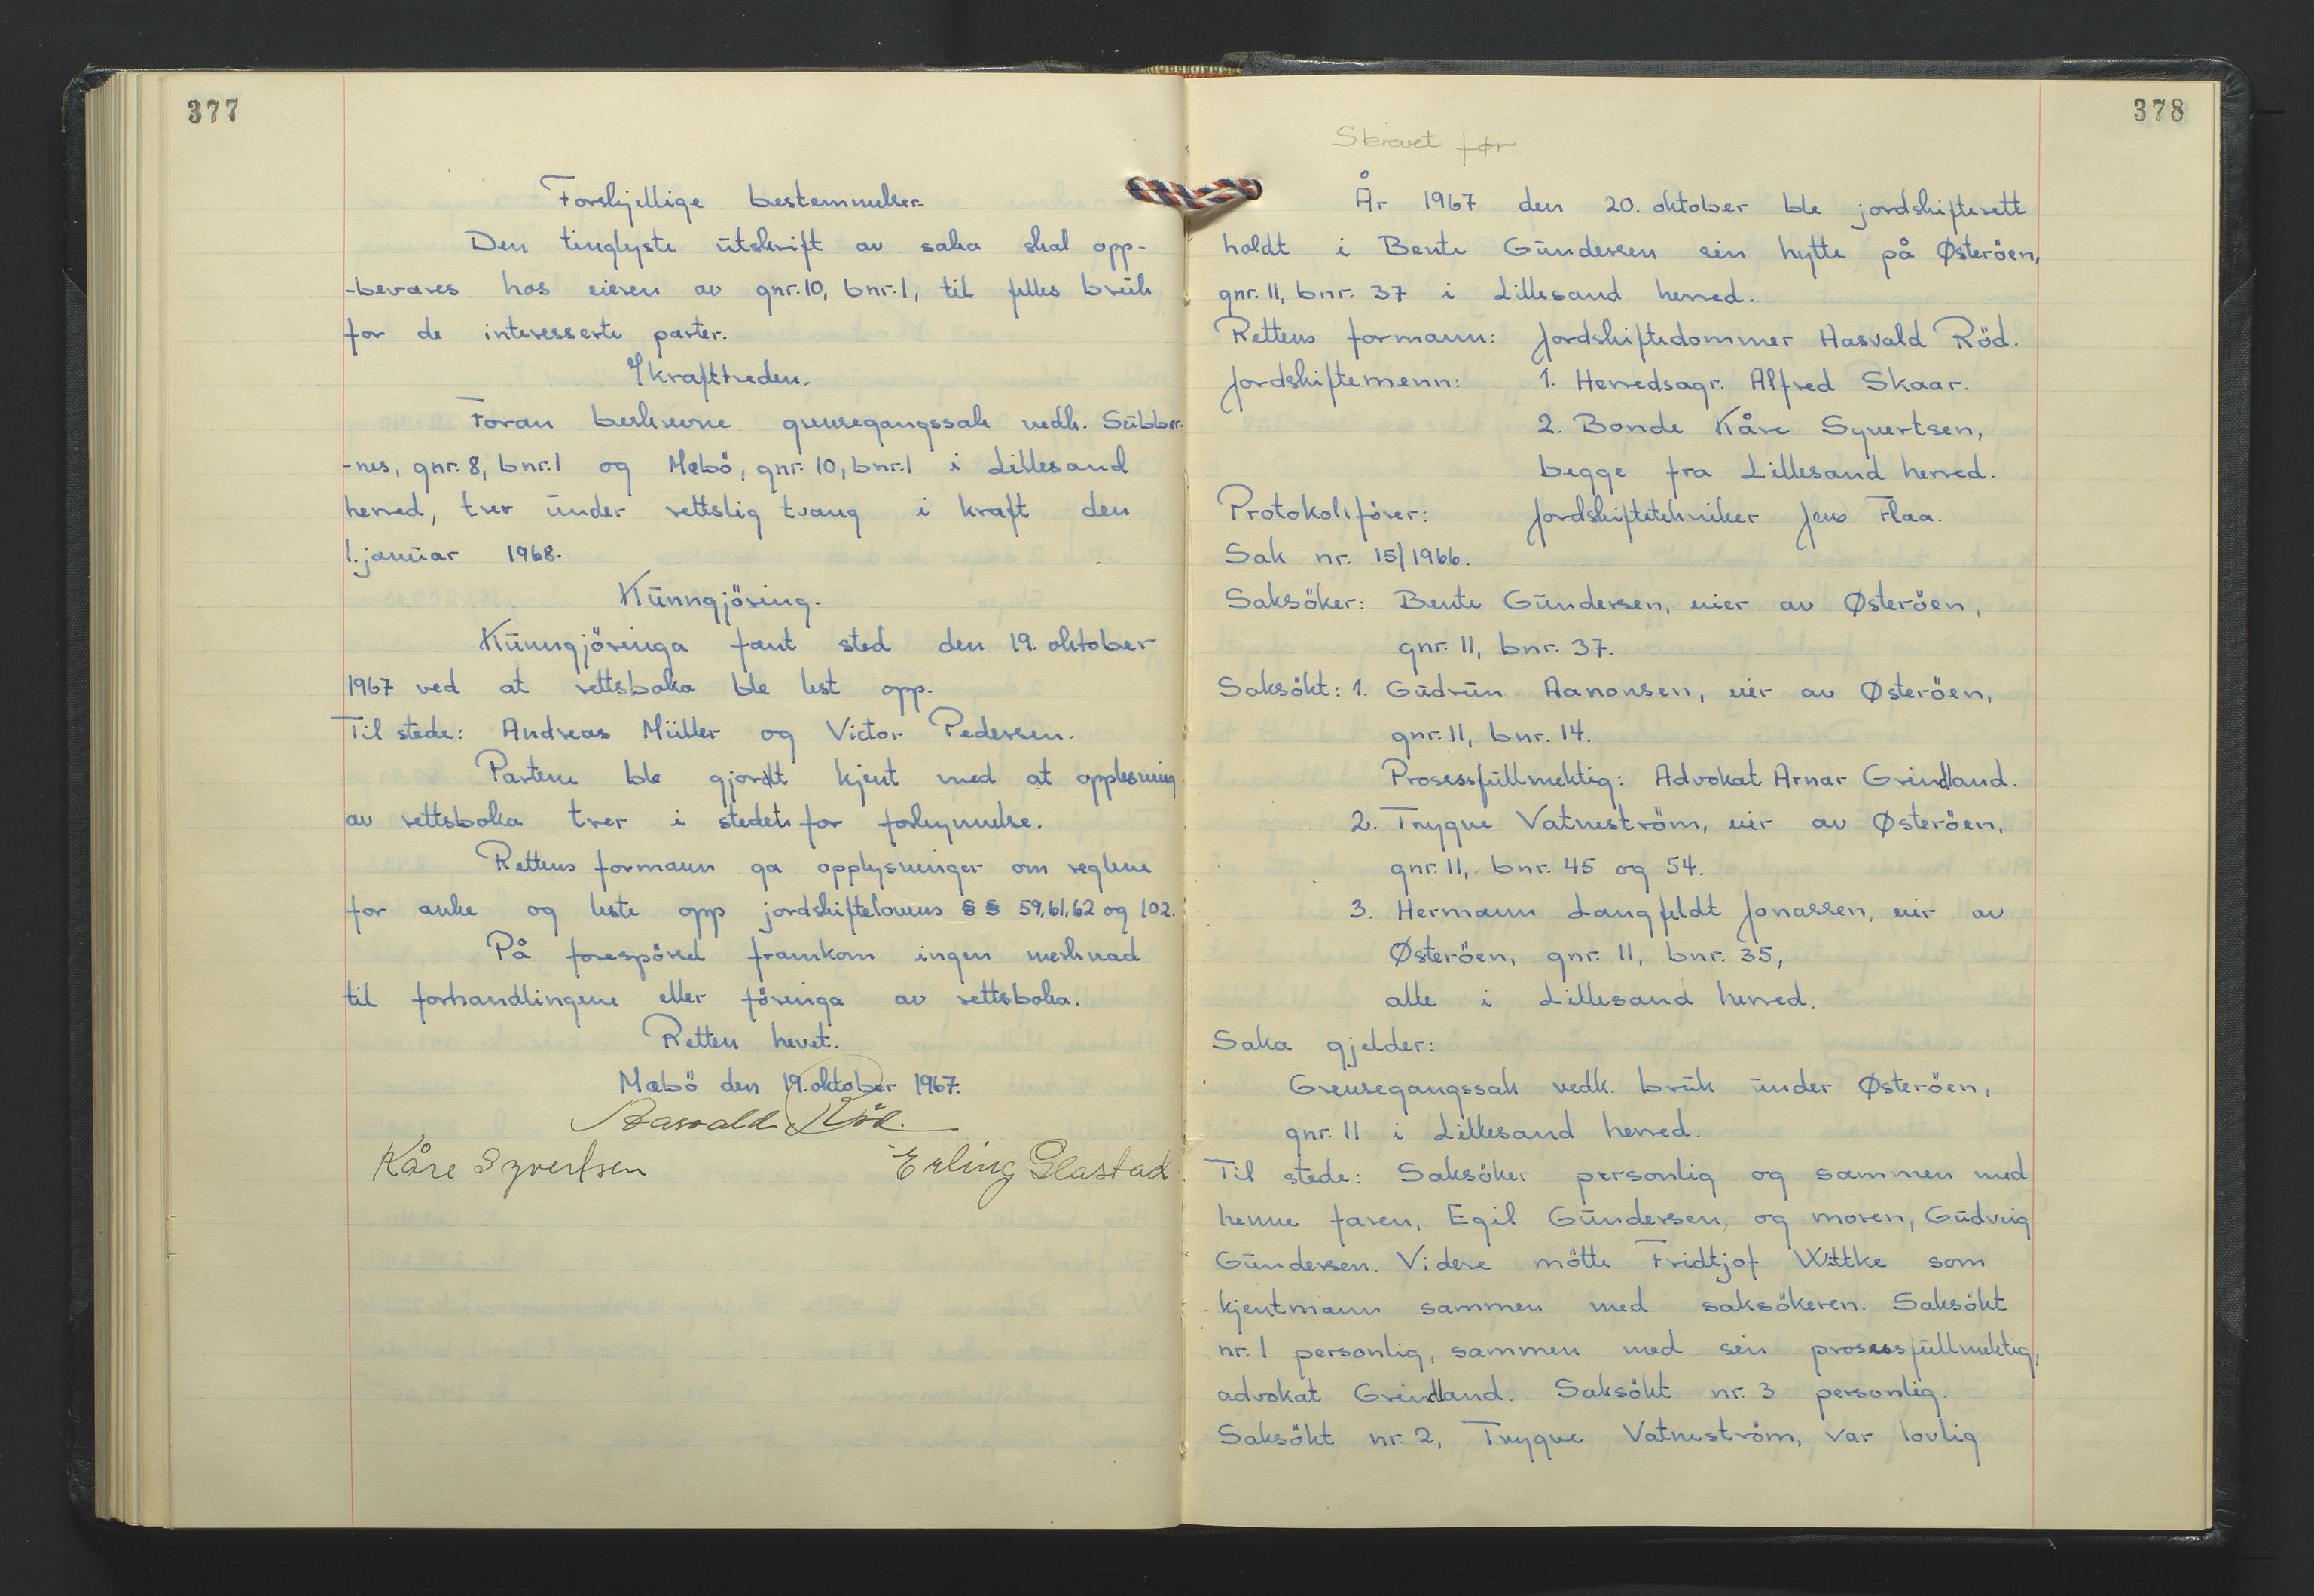 377
Forskjellige bestemmelser.
Den tinglyste utskrift av saka skal opp-
-bevares hos eieren av gnr. 10, bnr. 1, til felles bruk
for de interesserte parter.
Ikrafttreden.
Foran beskrevne grensegangssak vedk. Subber-
-nes, gnr. 8, bnr. 1 og Mæbö, gnr. 10, bnr. 1 i Lillesand
herred, trer under rettslig tvang i kraft den
1. januar 1968.
Kunngjöring.
Kunngjöringa fant sted den 19. oktober
1967 ved at rettsboka ble lest opp.
Til stede: Andreas Müller og Victor Pedersen.
Partene ble gjordt kjent med at opplesning
av rettsboka trer i stedet for forkynnelse.
Rettens formann ga opplysninger om reglene
for anke og leste opp jordskiftelovens §§ 59, 61, 62 og 102.
På forespörsel framkom ingen merknad
til forhandlingene eller föringa av rettsboka.
Retten hevet.
Mæbö den 19. oktober 1967.
Aasvald Röd.
Kåre Syvertsen Erling Glastad
378
Skrevet før
År 1967 den 20. oktober ble jordskifterett
holdt i Bente Gundersen sin hytte på Østeröen,
gnr. 11, bnr. 37 i Lillesand herred.
Rettens formann: Jordskiftedommer Aasvald Röd.
Jordskiftemenn: 1. Herredsagr. Alfred Skaar.
2. Bonde Kåre Syvertsen,
begge fra Lillesand herred.
Protokollförer: Jordskiftetekniker Jens Flaa.
Sak nr. 15/1966.
Saksöker: Bente Gundersen, eier av Østeröen,
gnr. 11, bnr. 37.
Saksökt: 1. Gudrun Aanonsen, eier av Østeröen,
gnr. 11, bnr. 14.
Prosessfullmektig: Advokat Arnar Grindland.
2. Trygve Vatneström, eier av Østeröen,
gnr. 11, bnr. 45 og 54.
3. Hermann Langfeldt Jonassen, eier av
Østeröen, gnr. 11, bnr. 35,
alle i Lillesand herred.
Saka gjelder:
Grensegangssak vedk. bruk under Østeröen,
gnr. 11 i Lillesand herred.
Til stede: Saksöker personlig og sammen med
henne faren, Egil Gundersen, og moren, Gudveig
Gundersen. Videre mötte Fridtjof Wittke som
kjentmann sammen med saksökeren. Saksökt
nr. 1 personlig, sammen med sin prosessfullmektig,
advokat Grindland. Saksökt nr. 3 personlig.
Saksökt nr. 2, Trygve Vatneström, var lovlig